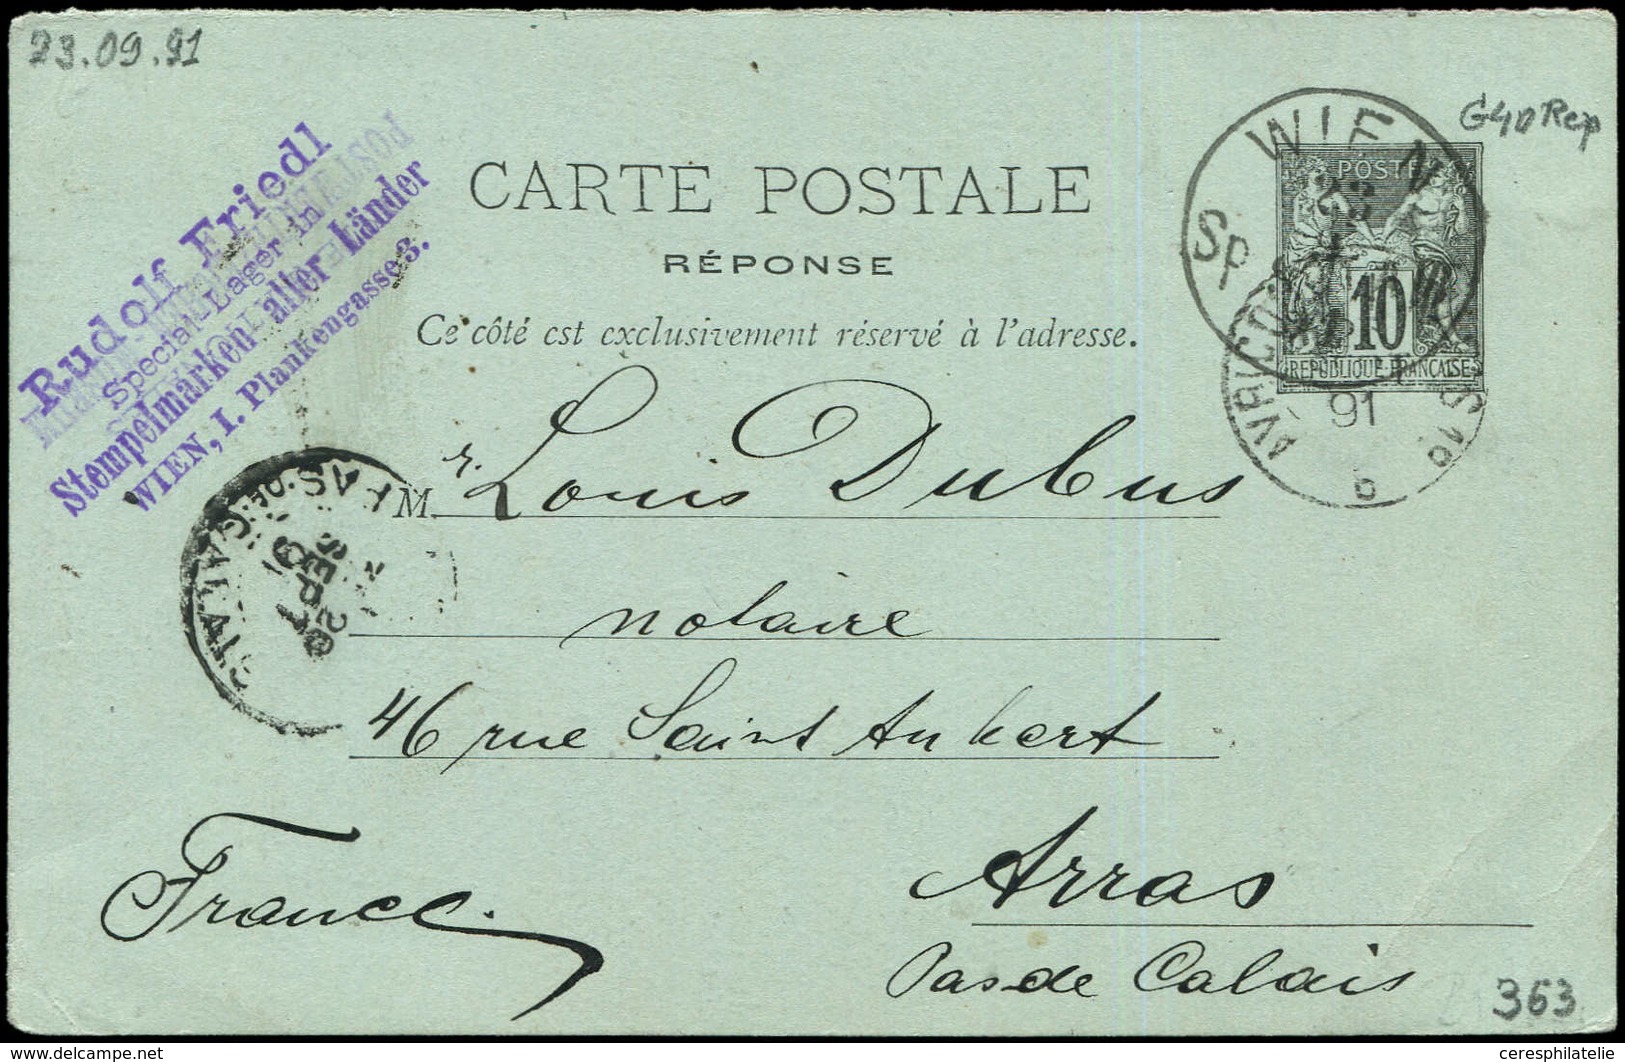 23.09.91
G40 Rep
Rudolf Friedl
Special-Lager in
Stempelmarken aller Länder
WIEN, I. Plankengasse 3.
CARTE POSTALE
RÉPONSE
Ce côté est exclusivement réservé à l'adresse.
WIEN
23
91
POSTE
10
REPUBLIQUE FRANÇAISE
Mr. Louis Dubus
notaire
46 rue Saint Aubert
Arras
Pas de Calais
France.
SEP
91
363
ceresphilatelie